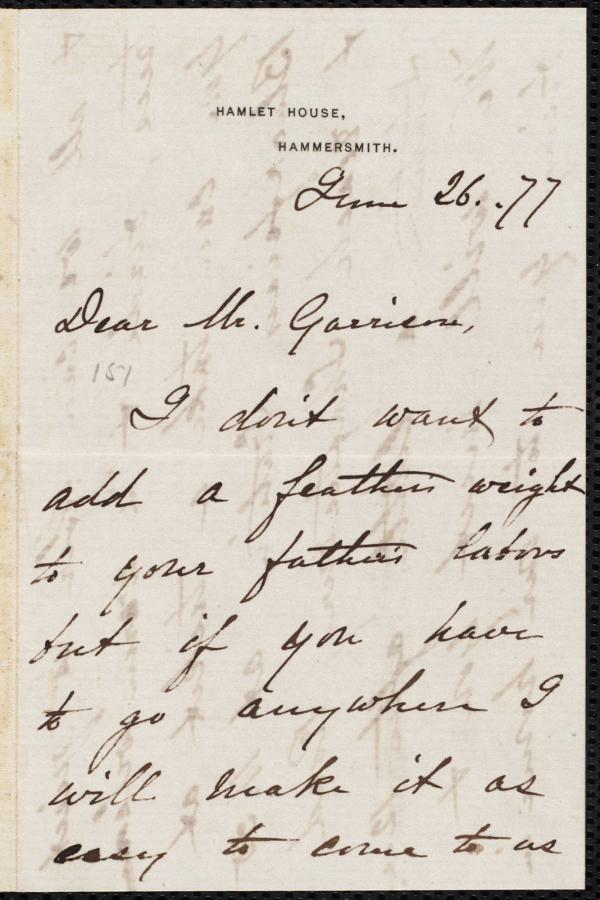 HAMLET HOUSE,
HAMMERSMITH.
June 26. .77
Dear Mr. Garrison,
151
I don't want to
add a feather's weight
to your father's labors
but if you have
to go anywhere I
will make it as
easy to come to us